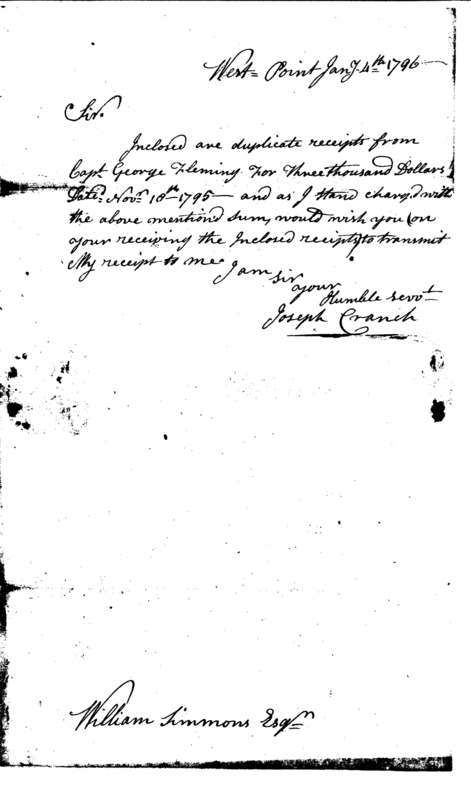 West= Point Jany. 4th 1796
Sir.
Inclosed are duplicate receipts from
Capt. George Fleming For Three thousand Dollars
Dated. Novr. 18th 1795— and as I stand charg,d with
the above mention'd sum, would wish you (on
your receiving the Inclosed receipts) to transmit
My receipt to me.
I am sir
your
Humble servt
Joseph Cranch
William Simmons Esqr